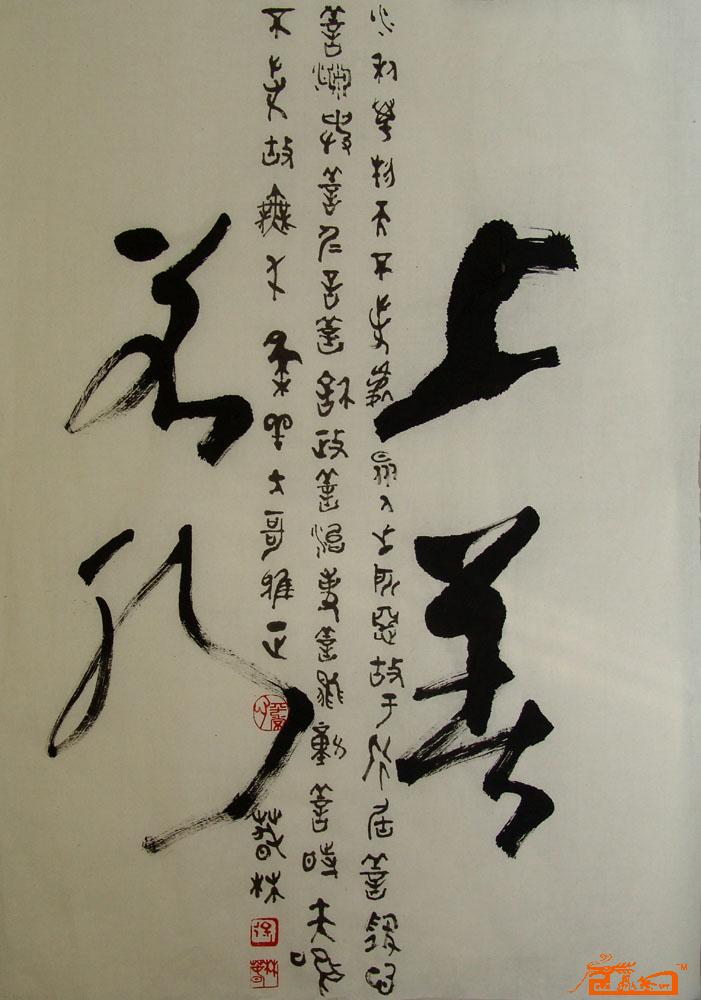 上善
若水
水利萬物而不爭處眾人之所惡故于道居善地心
善淵與善仁言善信政善治事善能動善時夫唯
不爭故無尤 大哥雅正
春林